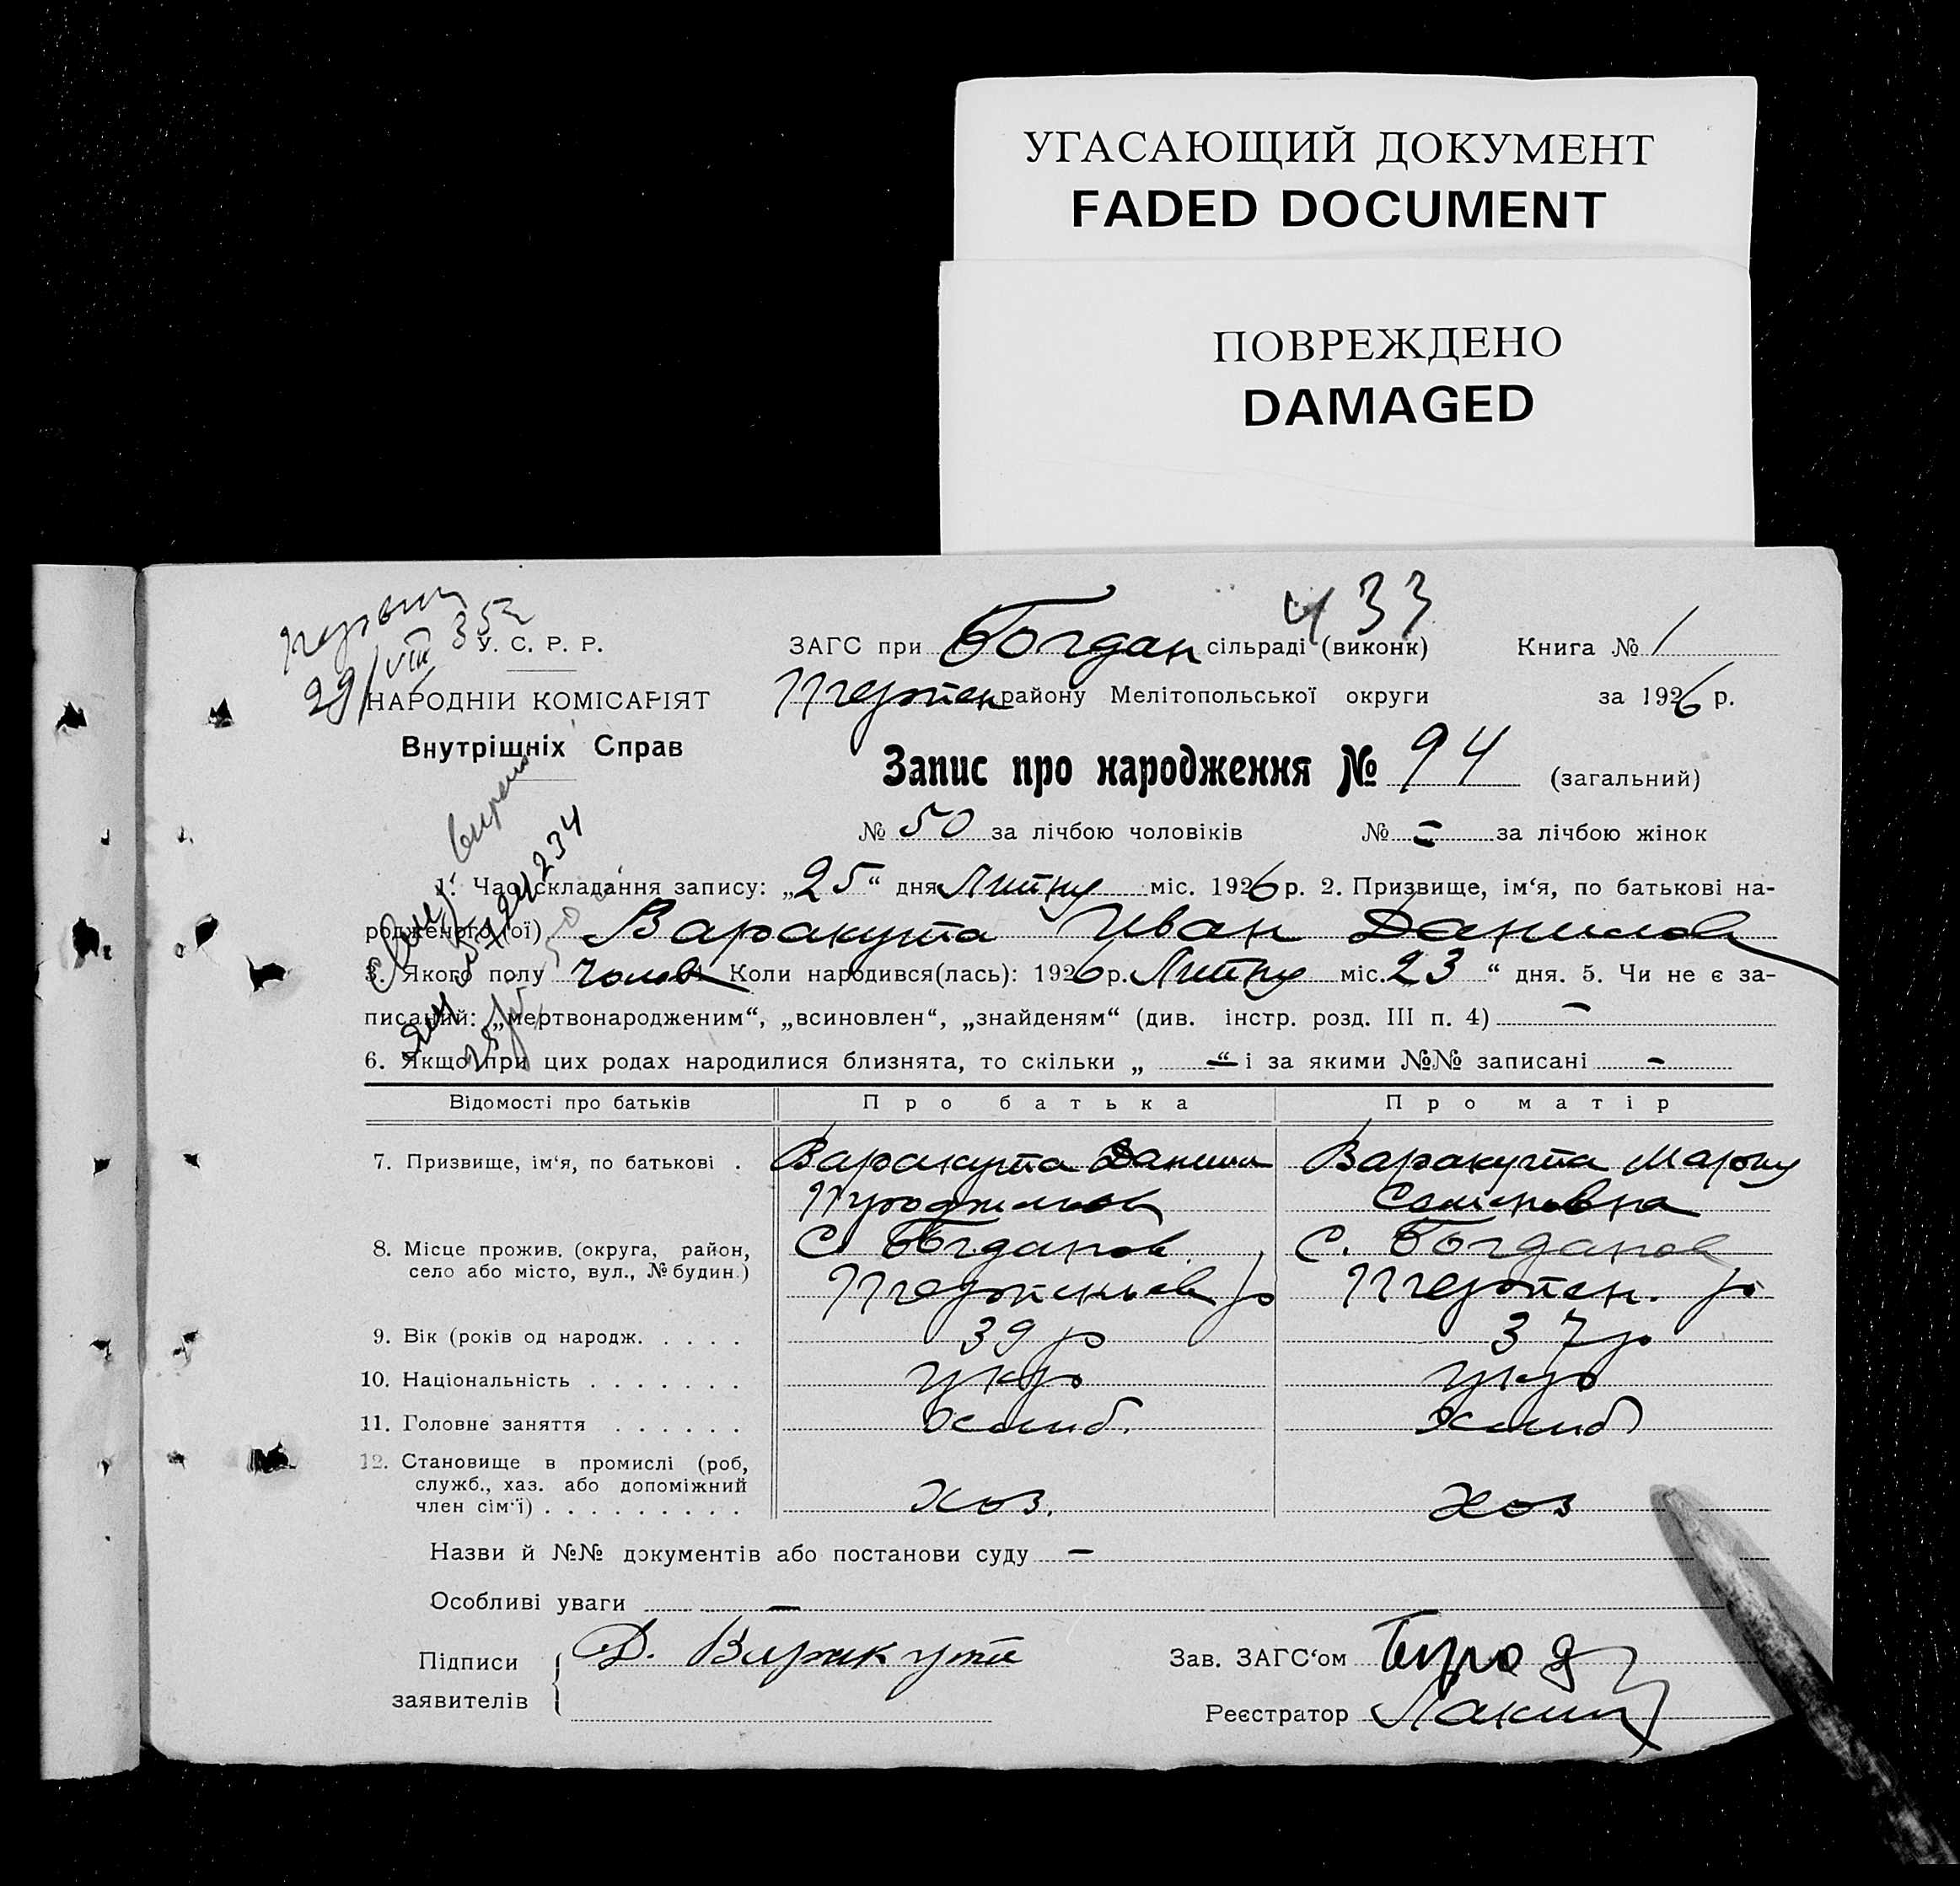 УГАСАЮЩИЙ ДОКУМЕНТ
FADED DOCUMENT
ПОВРЕЖДЕНО
DAMAGED
433
У. С. Р. Р.
НАРОДНІЙ КОМІСАРІЯТ
Внутрішніх Справ
ЗАГС при Богдан сільраді (виконк) Книга № 1
района Мелітопольської округи за 1926 р.
Запис про народження № 94 (загальний)
№ 50 за лічбою чоловіків № - за лічбою жінок
1. Час складання запису: „25“ дня Липню міс. 1926 р. 2. Призвище, ім'я, по батькові на-
родженого (ої) Варакута Иван Данилов
3. Якого полу Чолов 4. Коли народився(лась): 1926 р. Липню міс. 23 “ дня. 5. Чи не є за-
писаний: „мертвонародженим“, „всиновлен“, „знайденям“ (див. інстр. розд. III п. 4) -
6. Якщо при цих родах народилися близнята, то скільки „ - “ і за якими №№ записані -
Відомості про батьків Про батька Про матір
7. Призвище, ім'я, по батькові . Варакута Данил Варакута Марию
Семеновна
8. Місце прожив. (округа, район, С. Богданов С. Богданов
село або місто, вул., № будин.)
9. Вік (років од народж. . . . . 39 р 37 р
10. Національність . . . . . . . укр укр
11. Головне заняття . . . . . . Хлиб. Хлиб
12. Становище в промислі (роб,
служб., хаз. або допоміжний
член сім'ї) . . . . . . . . . хоз. хоз
Назви й №№ документів або постанови суду -
Особливі уваги -
Підписи заявителів Д. Варакута
Зав. ЗАГС'ом
Реєстратор